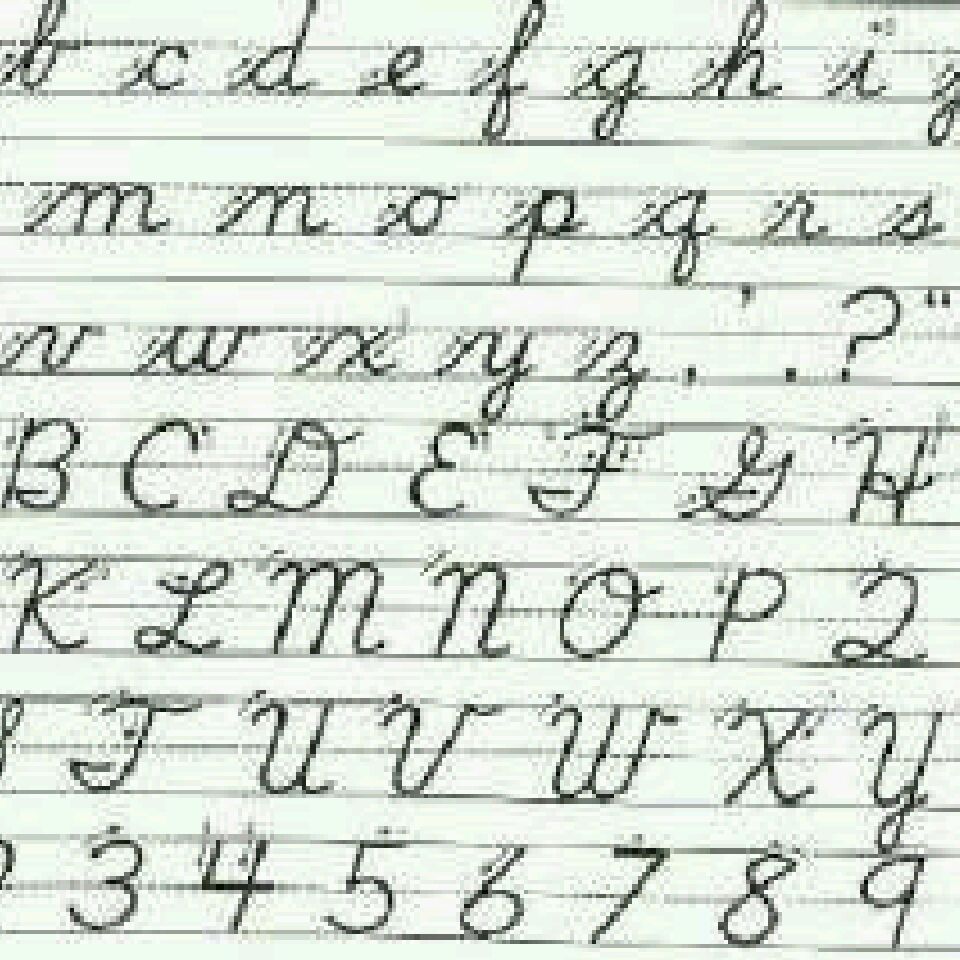 b c d e f g h i
m n o p q r s
v w x y z , ' . ? "
B C D E F G H
K L M N O P Q
T U V W X Y
3 4 5 6 7 8 9